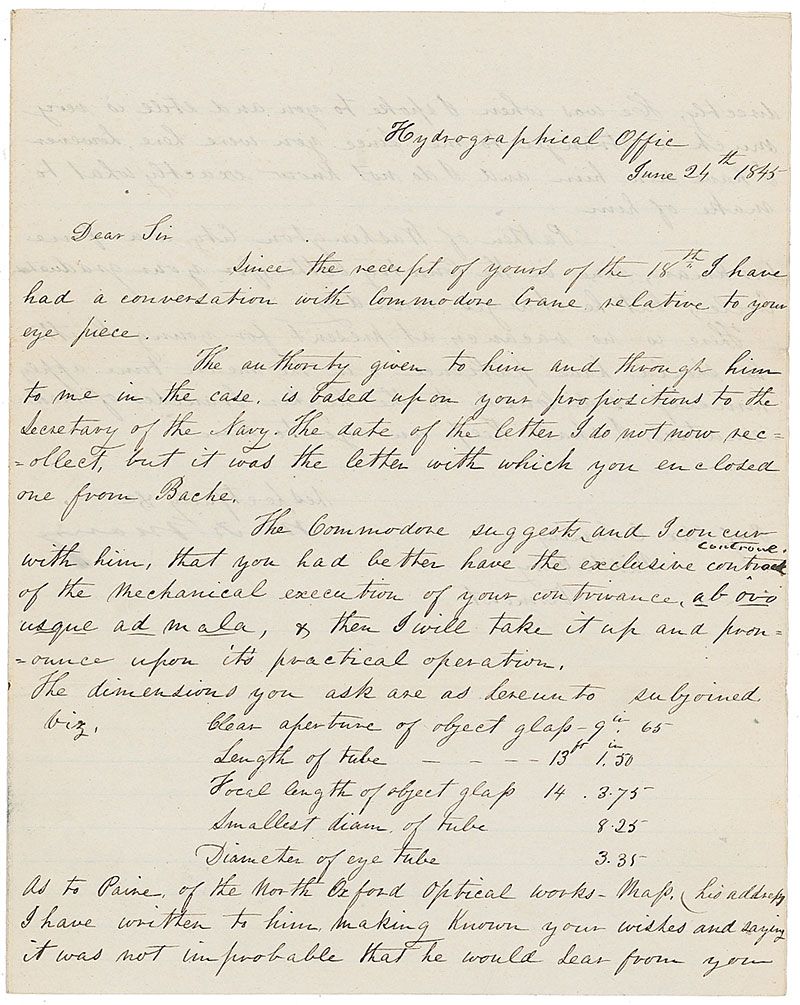 Hydrographical Office
June 24th 1845
Dear Sir
Since the receipt of yours of the 18th I have
had a conversation with Commodore Crane relative to your
eye piece.
The authority given to him and through him
to me in the case, is based upon your propositions to the
Secretary of the Navy. The date of the letter I do not now rec=
=ollect, but it was the letter with which you enclosed
one from Bache.
The Commodore suggests, and I concur
controul.
with him, that you had better have the exclusive
of the mechanical execution of your contrivance, ab ôvo
usque ad mala, & then I will take it up and pron=
=ounce upon it's practical operation.
The dimensions you ask are as hereunto subjoined
viz, Clear aperture of object glass - 9in. 65
Length of tube - - - - 13ft 1.in50
Focal length of object glass 14 . 3.75
Smallest diam. of tube 8.25
Diameter of eye tube 3.35
As to Paine, of the North Oxford Optical works - Mass, (his address)
I have written to him, making known your wishes and saying
it was not improbable that he would hear from you